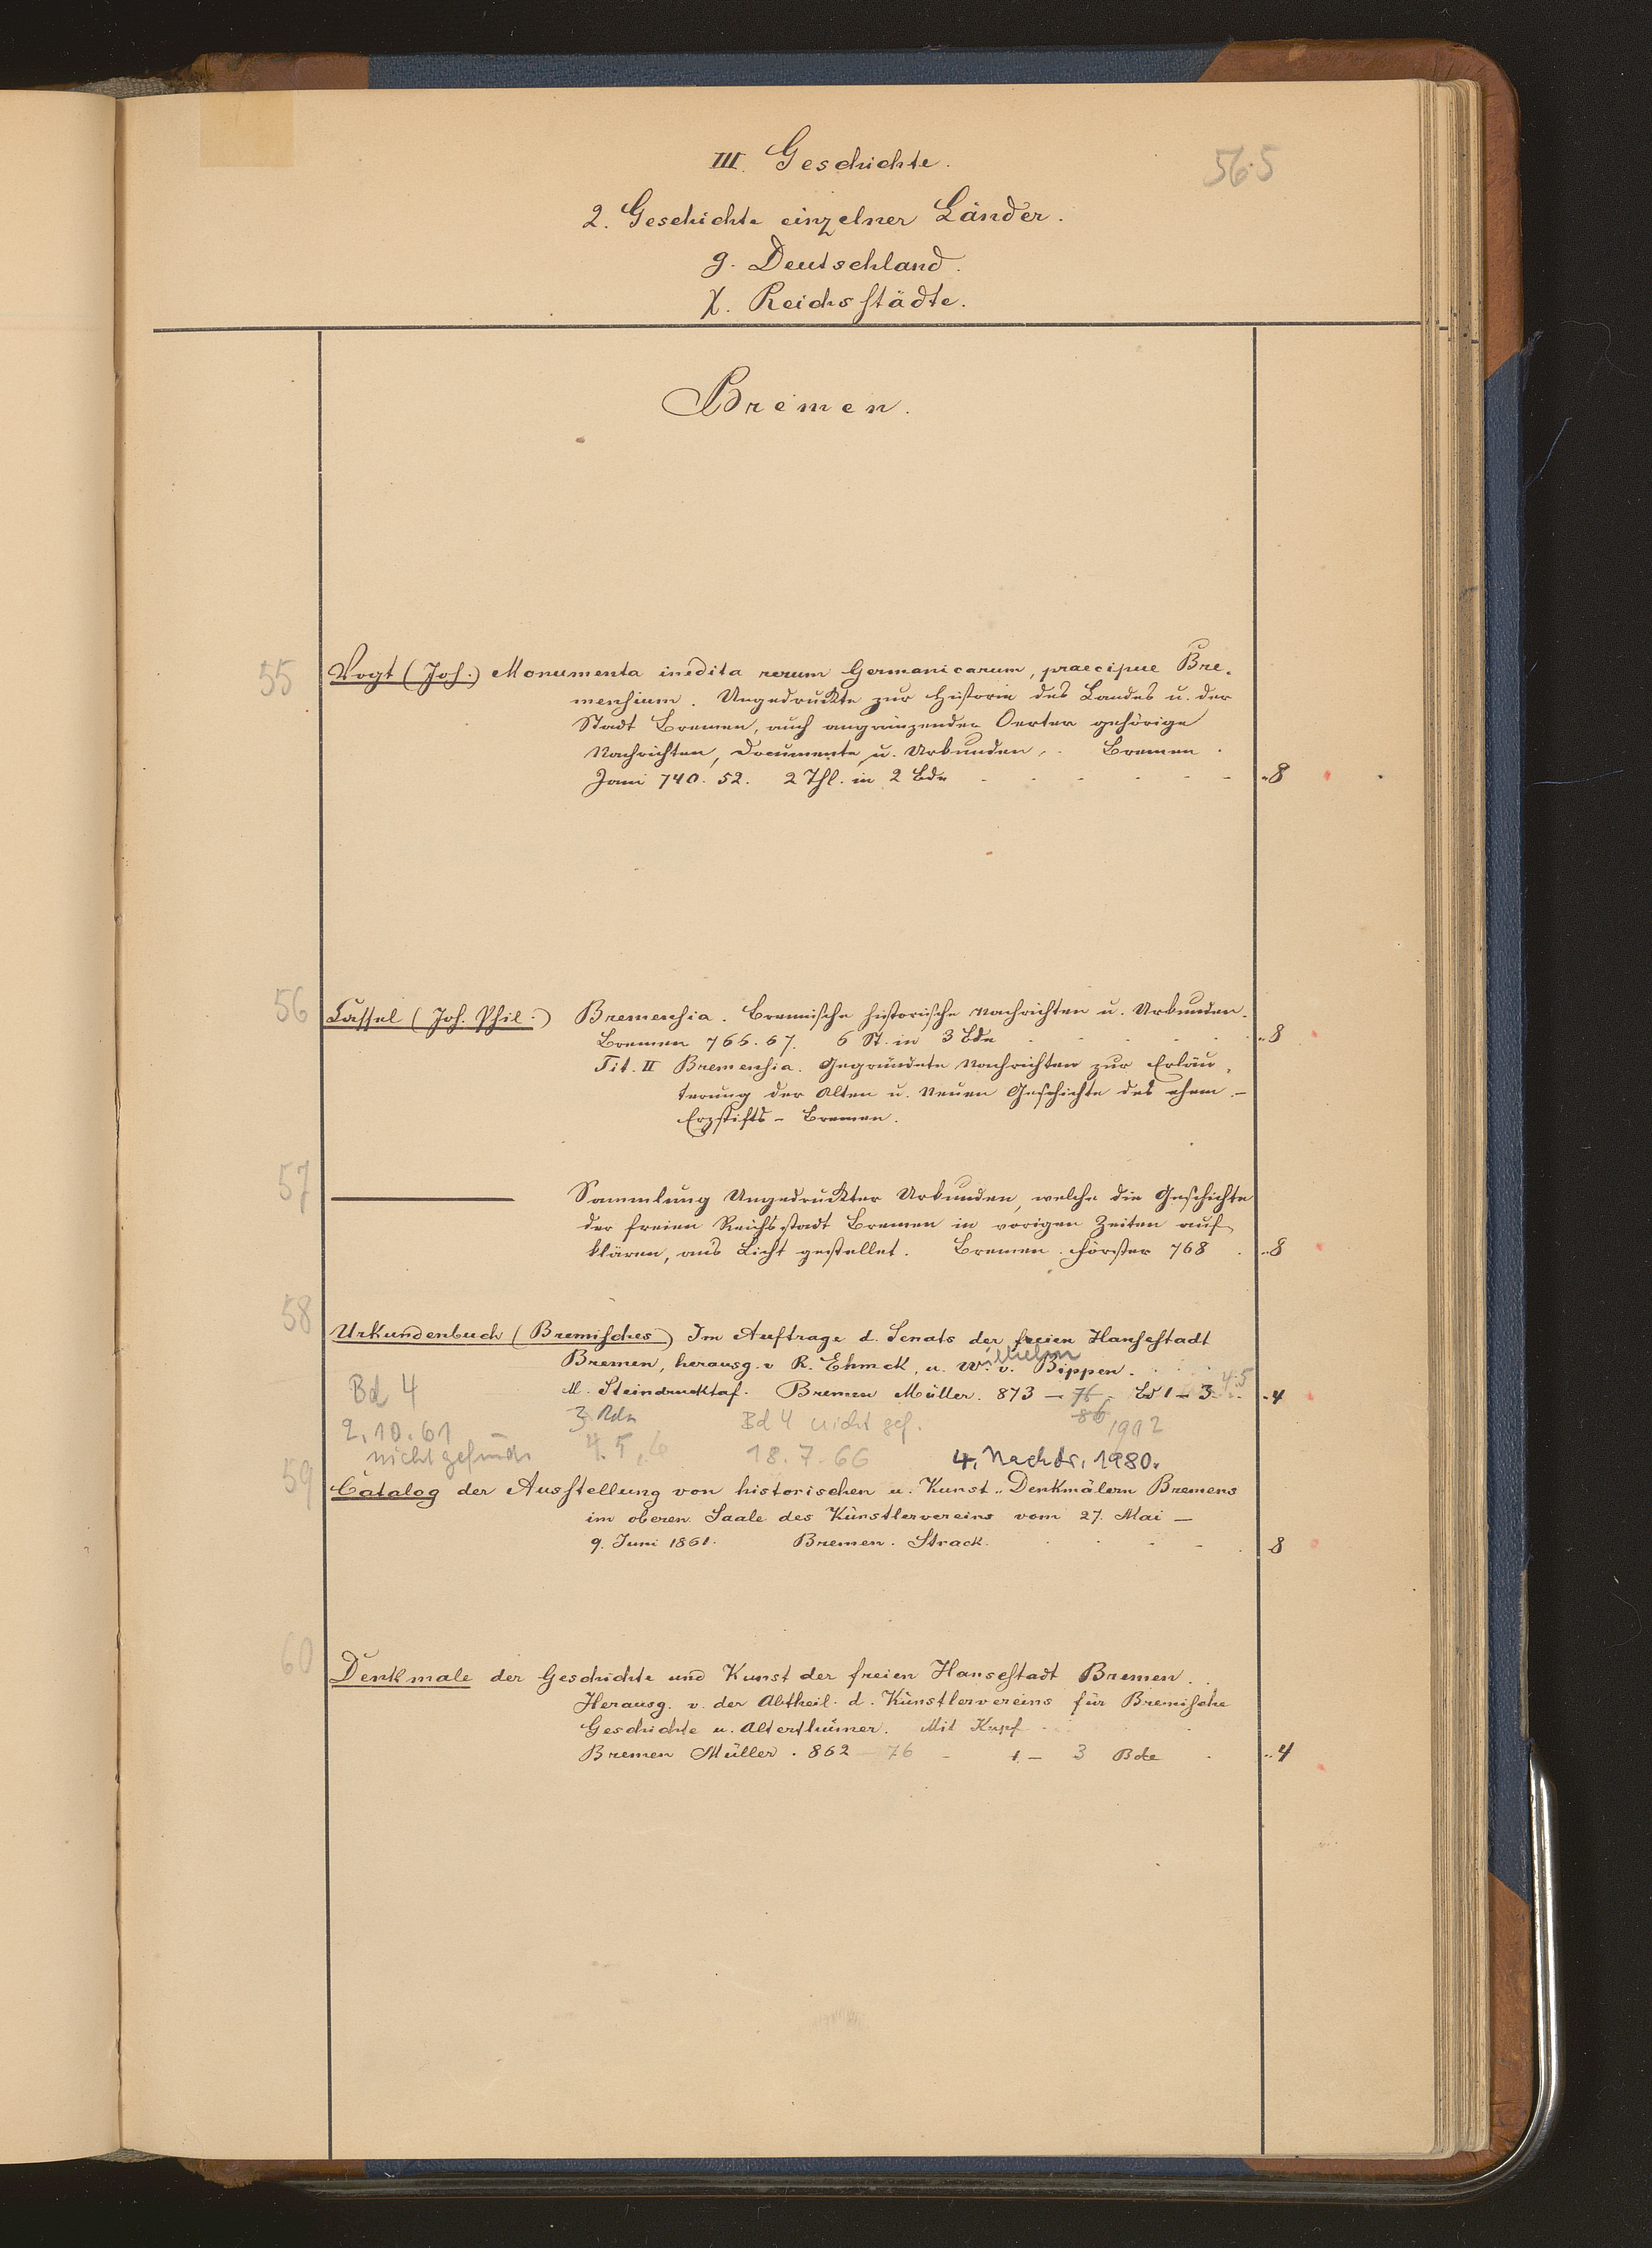 III. Geschichte.
565
2. Geschichte einzelner Länder.
g. Deutschland.
χ. Reichsstädte.
Bremen.
55
Vogt (Joh.) Monumenta inedita rerum Germanicarum, praecipue Bre-
mensium. Ungedruckte zur Historie des Landes u. der
Stadt Bremen, auch angränzender Oerter gehörige
Nachrichten, Documente u. Urkunden. Bremen.
Jani 740. 52. 2 Thl. in 2 Bde - - - - - 8
56
Cassel (Joh. Phil.) Bremensia. Bremische historische Nachrichten u. Urkunden.
Bremen 766. 67. 6 St. in 3 Bde 8
Tit. II Bremensia. Gegründete Nachrichten zur Erläu-
terung der Alten u. Neuen Geschichte des ehem.-
Erzstifts-Bremen.
57
Sammlung Ungedruckter Urkunden, welche die Geschichte
der freien Reichsstadt Bremen in vorigen Zeiten auf-
klären, ans Licht gestellet. Bremen. Förster 768 8
58
Urkundenbuch (Bremisches) Im Auftrage d. Senats der freien Hansestadt
Bremen, herausg. v R. Ehmck, u. Wilhelm v. Bippen.
M. Steindrucktaf. Bremen Müller. 873 - 76 - Bd 1 - 3. 4.5 4
86 1902
Bd 4
2.10.61
nicht gefund.
3 Bde
4. 5, 6
Bd 4 nicht gef.
18. 7. 66
4. Nachdr. 1980.
59
Catalog der Ausstellung von historischen u. Kunst-Denkmälern Bremens
im oberen Saale des Künstlervereins vom 27. Mai -
9. Juni 1861. Bremen. Strack. 8
60
Denkmale der Geschichte und Kunst der freien Hansestadt Bremen.
Herausg. v. der Abtheil. d. Künstlervereins für Bremische
Geschichte u. Alterthümer. Mit Kupf.
Bremen Müller. 862 - 76 - 1 - 3 Bde 4